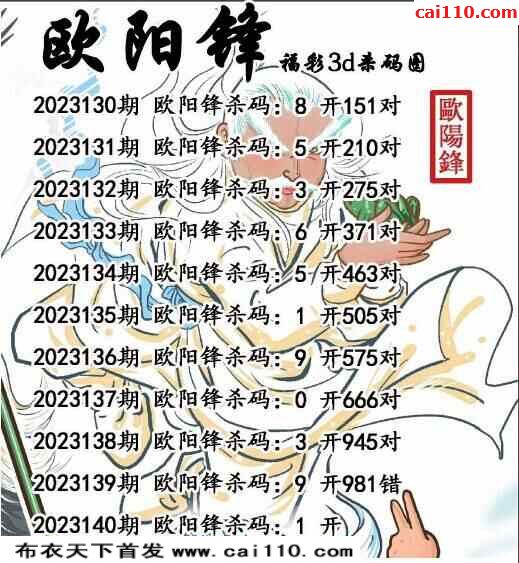 cai110.com
欧阳锋
福彩3d杀码图
歐陽鋒
2023130期 欧阳锋杀码：8 开151对
2023131期 欧阳锋杀码：5 开210对
2023132期 欧阳锋杀码：3 开275对
2023133期 欧阳锋杀码：6 开371对
2023134期 欧阳锋杀码：5 开463对
2023135期 欧阳锋杀码：1 开505对
2023136期 欧阳锋杀码：9 开575对
2023137期 欧阳锋杀码：0 开666对
2023138期 欧阳锋杀码：3 开945对
2023139期 欧阳锋杀码：9 开981错
2023140期 欧阳锋杀码：1 开
布衣天下首发 www.cai110.com